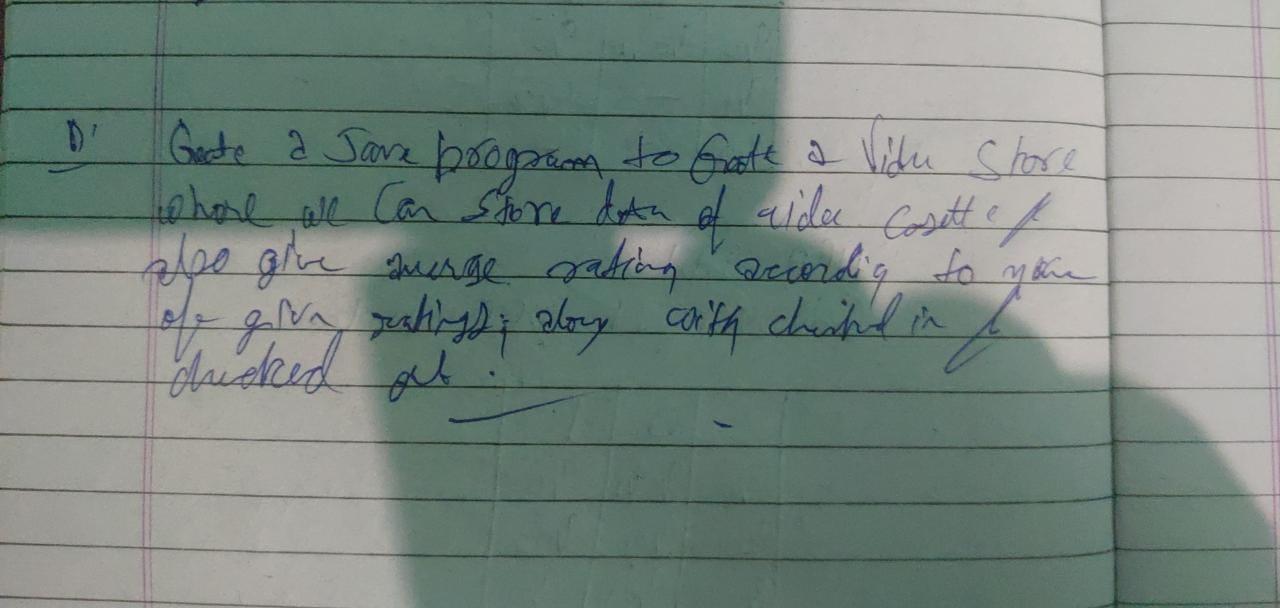 Q1 Create a Java program to Create a Video Store
where we can Store data of video Casette /
also give averge rating accordig to you
of given ratings; along with checked in /
checked out.